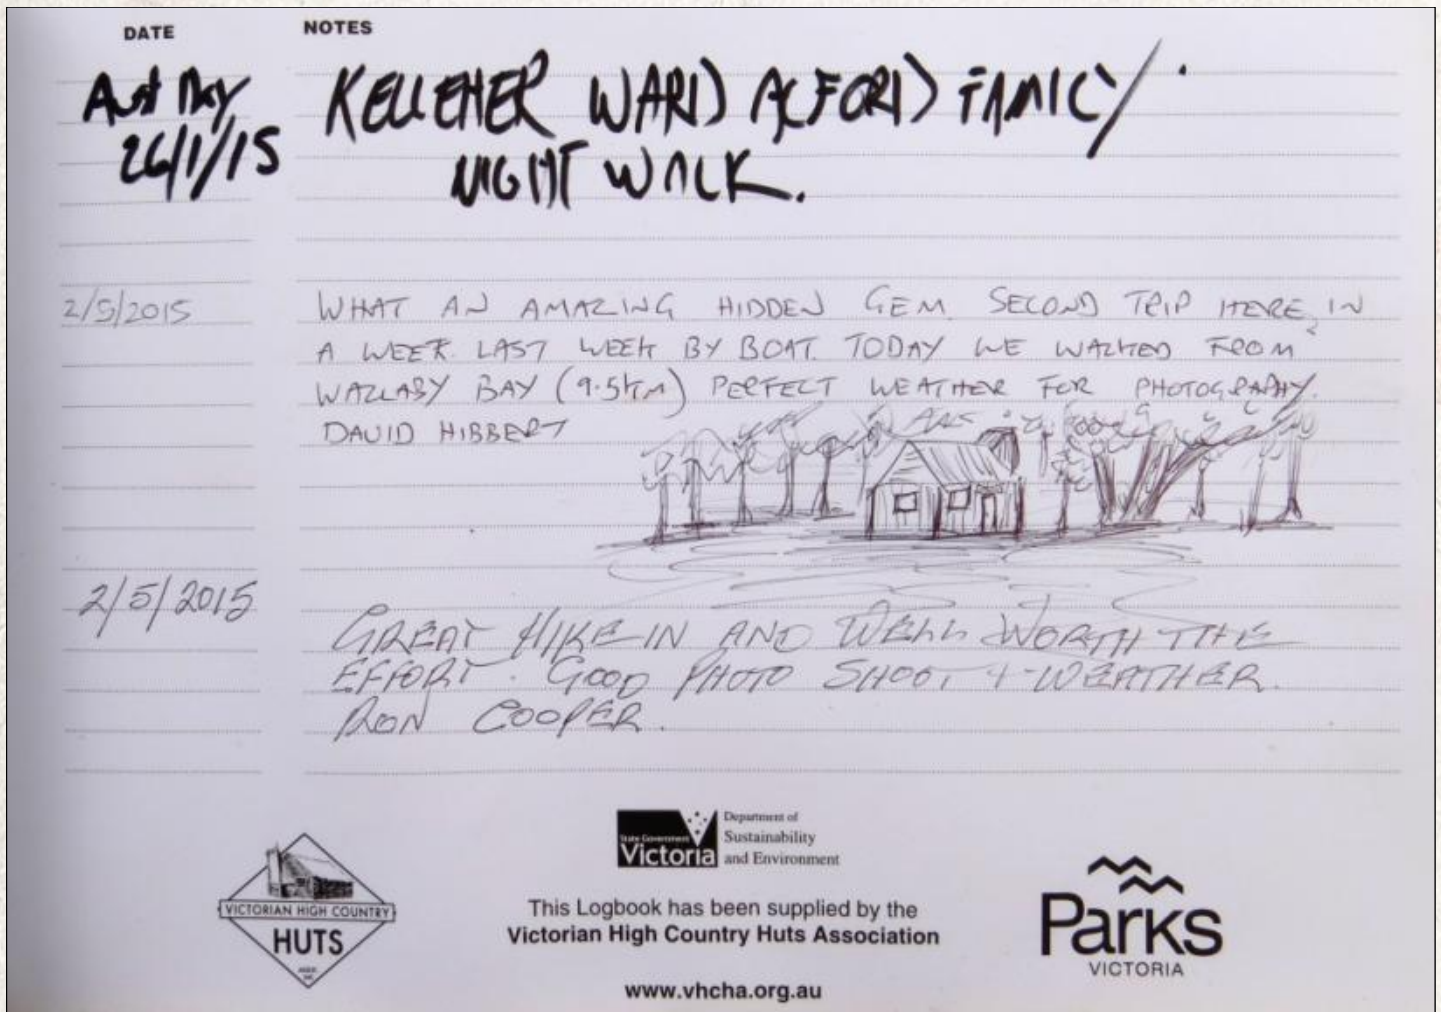 DATE NOTES
Aust Day KELLEHER WARD ALFORD FAMILY
26/1/15 NIGHT WALK.
2/5/2015 WHAT AN AMAZING HIDDEN GEM. SECOND TRIP HERE, IN
A WEEK. LAST WEEK BY BOAT. TODAY WE WALKED FROM
WALLABY BAY (9.5KM) PERFECT WEATHER FOR PHOTOGRAPHY.
DAVID HIBBERT
2/5/2015
GREAT HIKE IN AND WELL WORTH THE
EFFORT. GOOD PHOTO SHOOT + WEATHER.
RON COOPER.
State Government
Victoria
Department of
Sustainability
and Environment
VICTORIAN HIGH COUNTRY
HUTS
ASSOC.
INC.
This Logbook has been supplied by the
Victorian High Country Huts Association
www.vhcha.org.au
Parks
VICTORIA